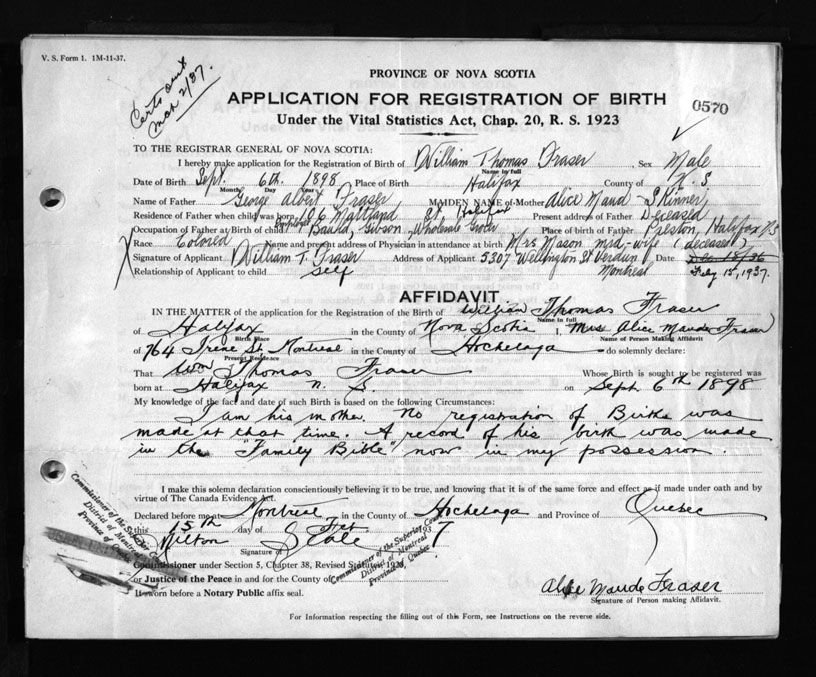 V. S. Form 1. 1M-11-37.
Certs sent
Mar 2/37.
PROVINCE OF NOVA SCOTIA
APPLICATION FOR REGISTRATION OF BIRTH
0570
Under the Vital Statistics Act, Chap. 20, R. S. 1923
TO THE REGISTRAR GENERAL OF NOVA SCOTIA:
I hereby make application for the Registration of Birth of William Thomas Fraser, Sex Male
Name in full
Date of Birth Sept. 6th. 1898 Place of Birth Halifax County of N. S.
Month Day Year
Name of Father George Albert Fraser MAIDEN NAME of Mother Alice Maud Skinner
Residence of Father when child was born 166 Maitland St. Halifax Present address of Father Deceased
Occupation of Father at Birth of Child Employee Bauld, Gibson, Wholesale Grocer Place of birth of Father Preston, Halifax NS
Race Colored Name and present address of Physician in attendance at birth Mrs Mason mid-wife (deceased)
Signature of Applicant William T. Fraser Address of Applicant 5307 Wellington St Verdun Date Dec 18/36
Relationship of Applicant to child self Montreal Feby 15, 1937.
AFFIDAVIT
IN THE MATTER of the application for the Registration of the Birth of William Thomas Fraser
Name in full
of Halifax in the County of Nova Scotia I, Mrs Alice Maude Fraser
Birth Place Name of Person Making Affidavit
of 764 Irene St. Montreal in the County of Hochelaga do solemnly declare:
Present Residence
That Wm Thomas Fraser Whose Birth is sought to be registered was
born at Halifax N. S. on Sept 6th 1898
My knowledge of the fact and date of such Birth is based on the following Circumstances:
I am his mother. No registration of Births was
made at that time. A record of his birth was made
in the "Family Bible" now in my possession.
I make this solemn declaration conscientiously believing it to be true, and knowing that it is of the same force and effect as if made under oath and by
virtue of The Canada Evidence Act.
Declared before me at Montreal in the County of Hochelaga and Province of Quebec
this 15th day of Feb 1937
Signature of
Commissioner of the Superior Court
District of Montreal
Province of Quebec
Commissioner under Section 5, Chapter 38, Revised Statutes 1923,
or Justice of the Peace in and for the County of
Commissioner of the Superior Court
District of Montreal
Province of Quebec
If sworn before a Notary Public affix seal.
Alice Maude Fraser
Signature of Person making Affidavit.
For Information respecting the filling out of this Form, see Instructions on the reverse side.